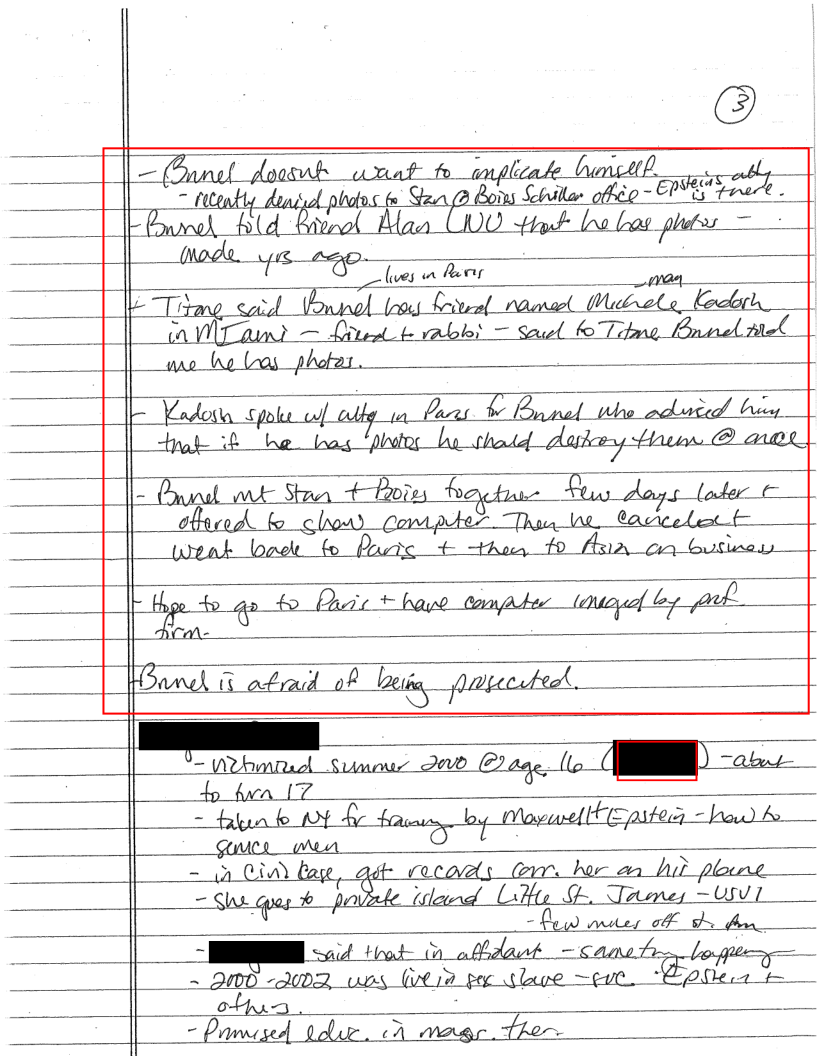 3
- Brunel doesnt want to implicate himself.
- recently denied photos to Stan @ Boies Schiller office - Epstein's atty is there.
- Brunel told friend Alan (NU) that he has photos -
made yrs ago.
lives in Paris
man
+ Titane said Brunel has friend named Michele Kadosh
in MIami - friend + rabbi - said to Titane Brunel told
me he has photos.
- Kadosh spoke w/ atty in Paris for Brunel who adviced him
that if he has photos he should destroy them @ once
- Brunel mt Stan + Boies together few days later +
offered to show computer. Then he canceled +
went back to Paris + then to Asia on business
- Hope to go to Paris + have computer imaged by prf.
firm-
- Brunel is afraid of being prosecuted.
- victimized summer 2000 @ age 16 ( ) - about
to turn 17
- taken to NY for training by Maxwell + Epstein - how to
service men
- in Civil case, got records corr. her on his plane
- She goes to private island Little St. James - USVI
- few miles off St.
- said that in affidavit - happen
- 2000-2002 was live in sex slave - svc. Epstein +
others.
- Promised educ. in massg. ther.